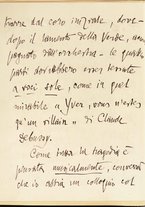 trarre dal coro iniziale, dove,
dopo il lamento della Verbe,
pagnato dall'orchestra - le quattro
parti dovrebbero esser trattate
a voci sole, come in quel
mirabile « Yver, vous n'estes
qu'un villain » di Claude
Debussy.
Come tutta la tragedia è
pensata musicalmente, converrà
che io abbia un colloquio col